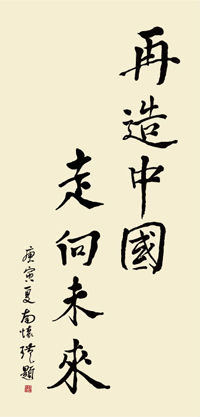 再造中國
走向未來
庚寅夏南懷瑾題